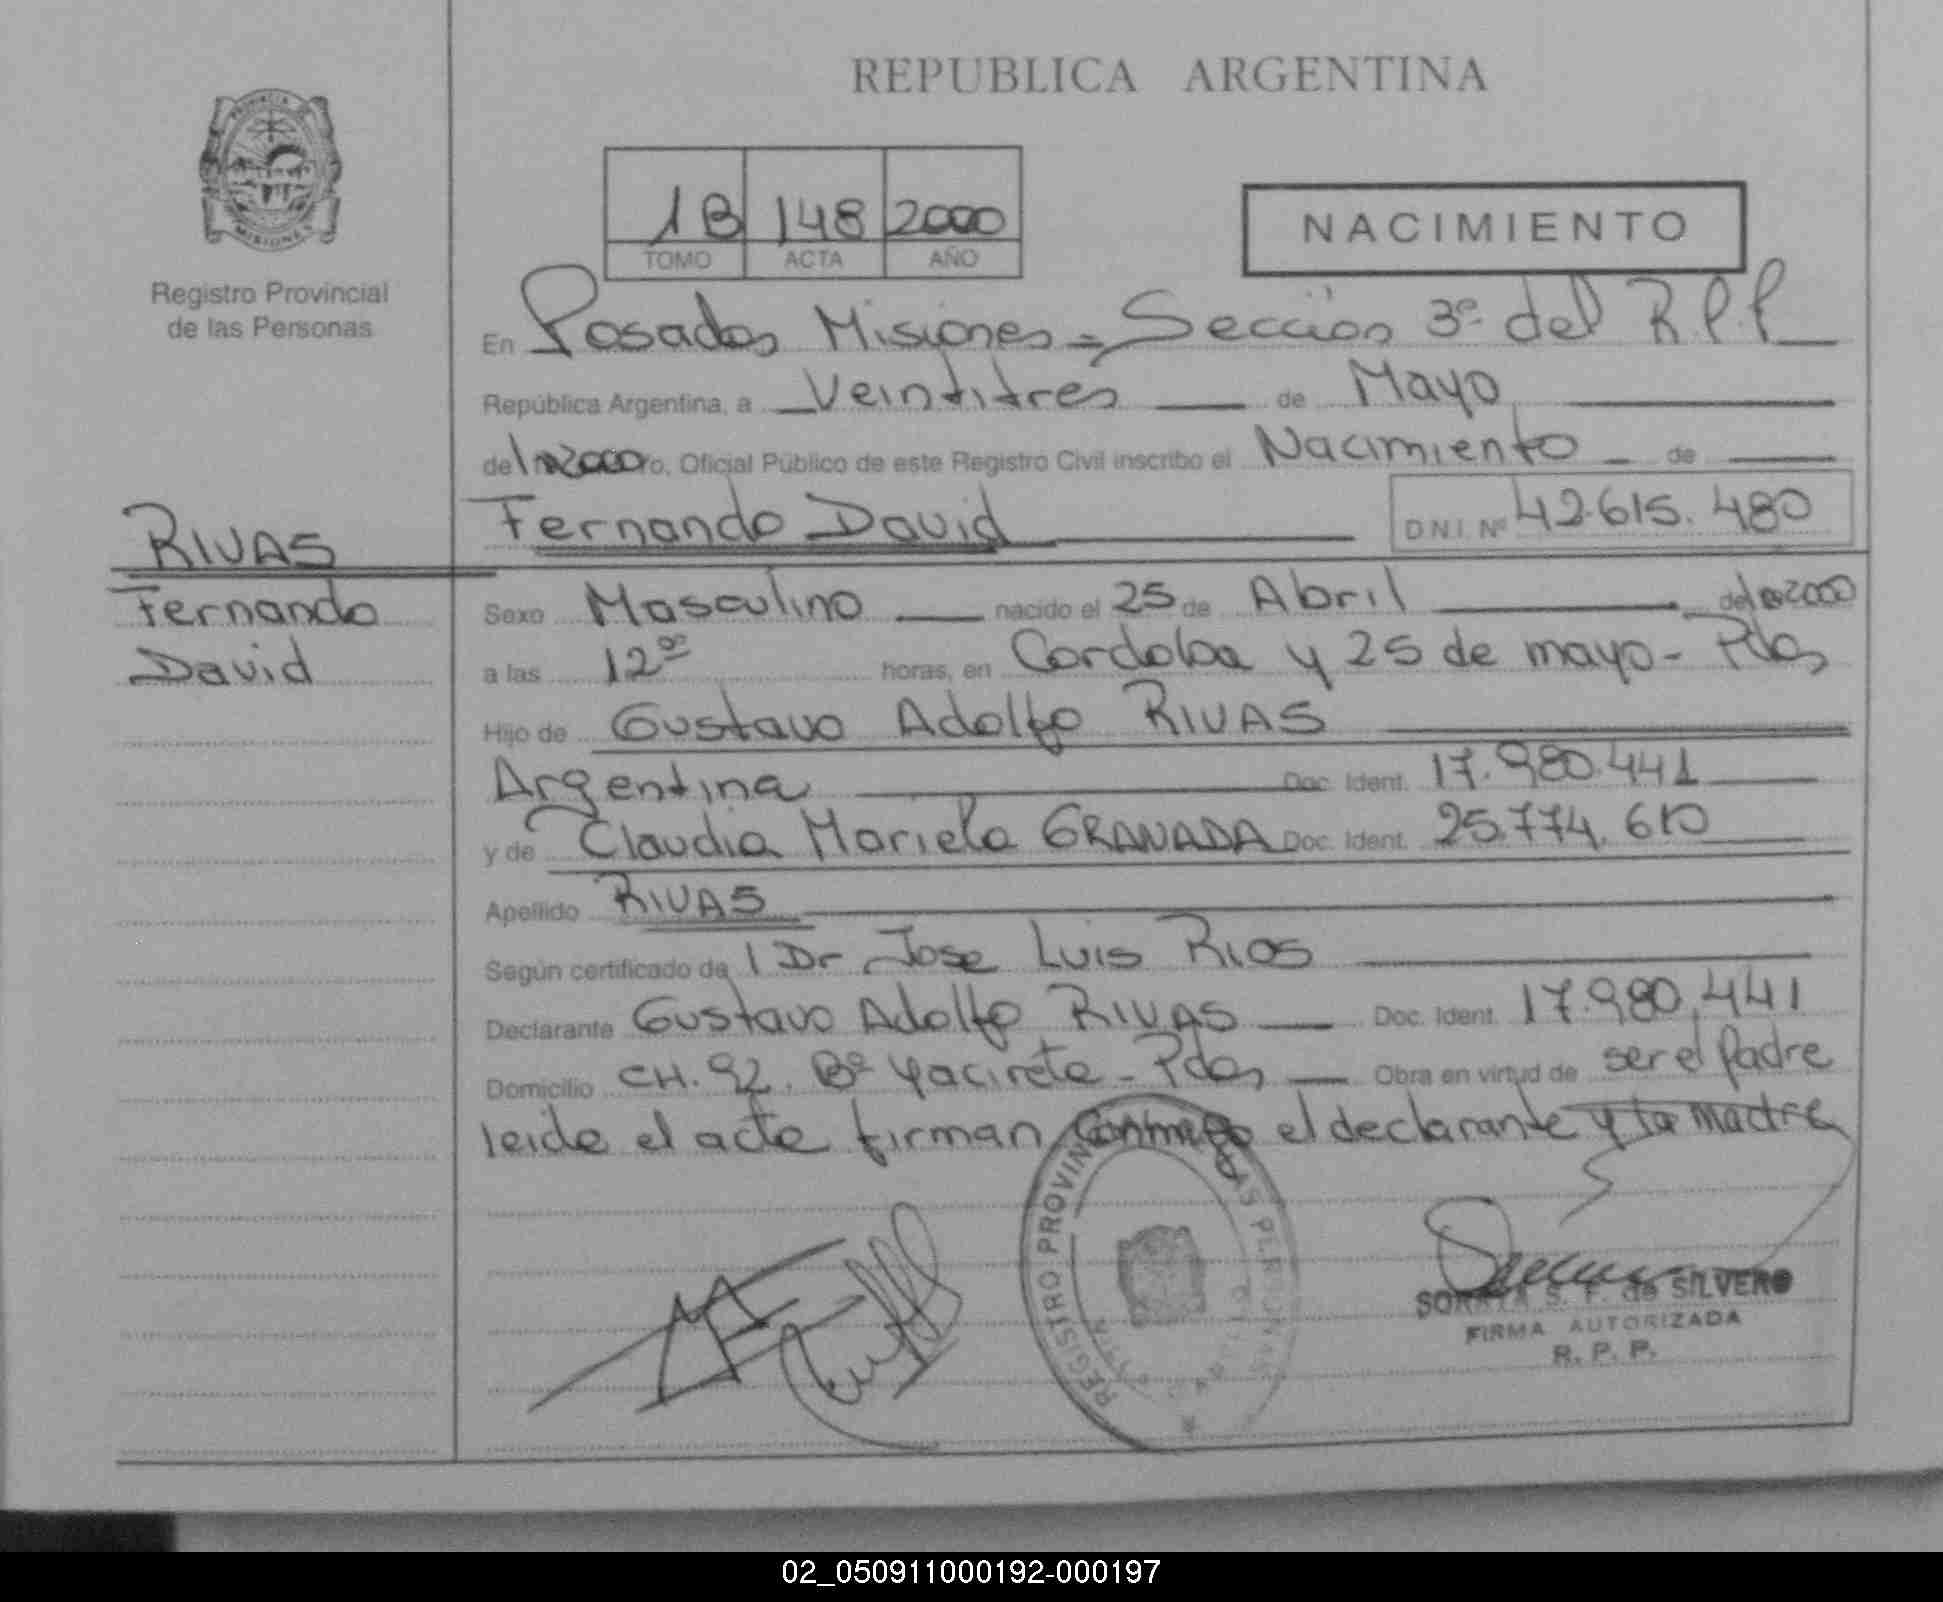 REPUBLICA ARGENTINA
PROVINCIA DE
MISIONES
Registro Provincial
de las Personas
1B 148 2000
TOMO ACTA AÑO
NACIMIENTO
En Posadas Misiones - Sección 3ª del R.P.P
República Argentina, a Veintitrés de Mayo
del 2000 Oficial Público de este Registro Civil inscribo el Nacimiento de
Fernando David D.N.I. Nº 42.615.480
RIVAS
Fernando
David
Sexo Masculino nacido el 25 de Abril del 2000
a las 12⁰⁰ horas, en Cordoba y 25 de mayo - Pdas
Hijo de Gustavo Adolfo RIVAS
Argentina Doc. Ident. 17.980.441
y de Claudia Mariela GRANADA Doc. Ident. 25.774.610
Apellido RIVAS
Según certificado de l Dr Jose Luis Rios
Declarante Gustavo Adolfo RIVAS Doc. Ident. 17.980.441
Domicilio CH. 92. Bº Yacireta - Pdas Obra en virtud de ser el Padre
leida el acta firman conmigo el declarante y la madre
REGISTRO PROVINCIAL
SORAYA S. F. de SILVERO
FIRMA AUTORIZADA
R. P. P.
02_050911000192-000197